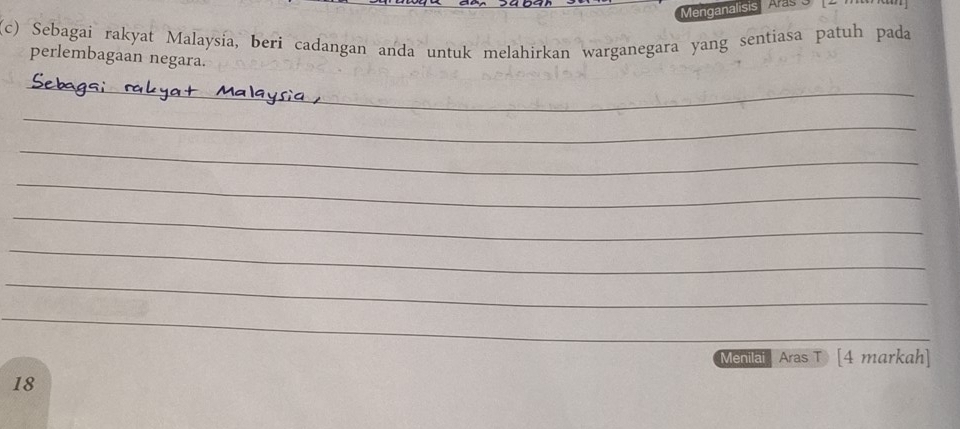 Menganalisis Aras S
(c) Sebagai rakyat Malaysia, beri cadangan anda untuk melahirkan warganegara yang sentiasa patuh pada
perlembagaan negara.
Sebagai rakyat Malaysia,
Menilai Aras T [4 markah]
18